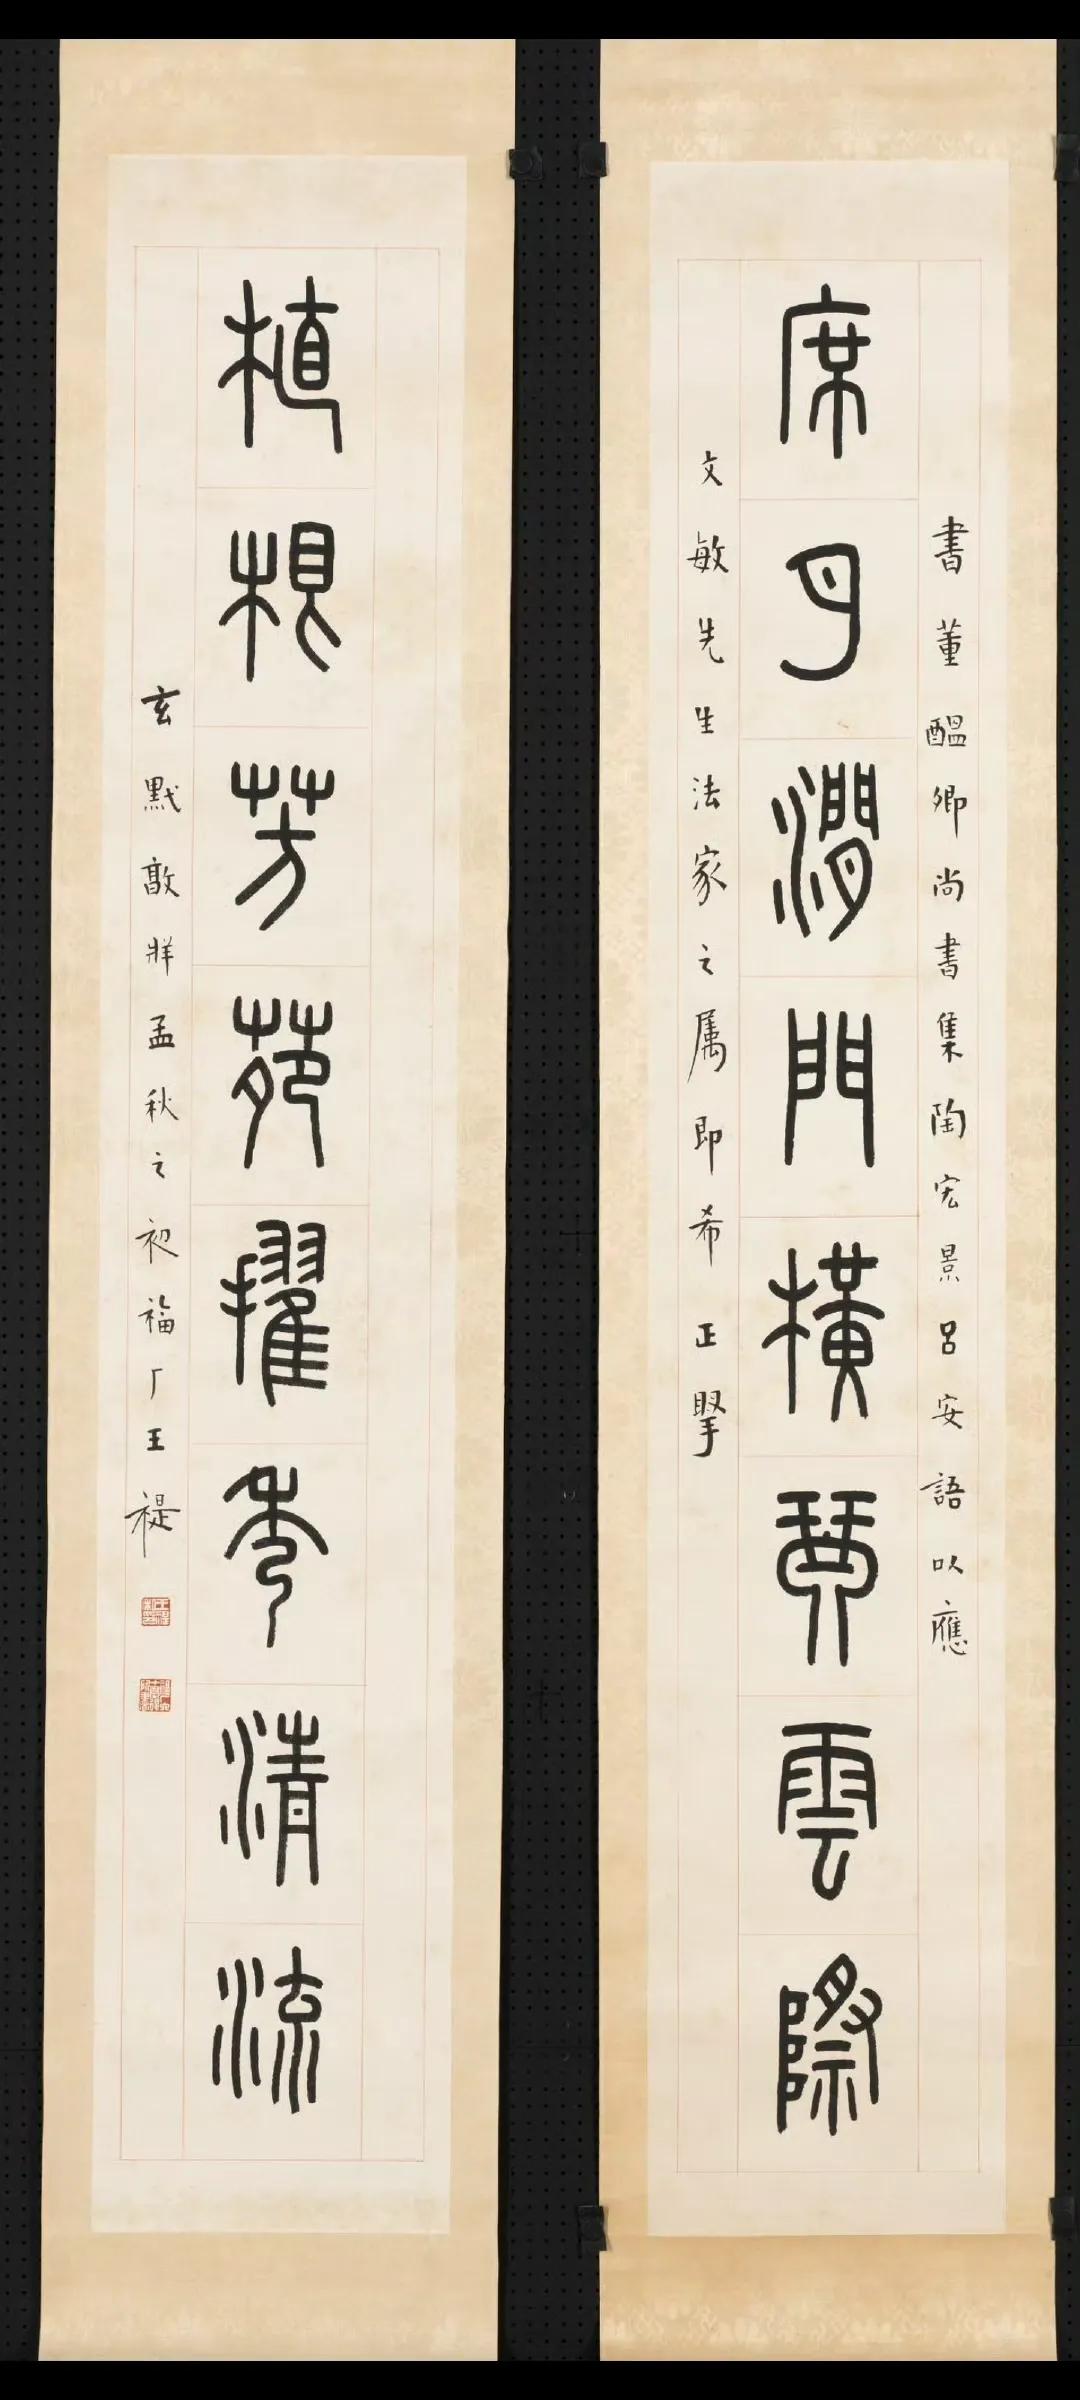 書董醞卿尚書集陶宏景呂安語以應
席月澗門橫琴雲際
文敏先生法家之属即希正掔
植根芳苑擢秀清流
玄黓敦牂孟秋之初福厂王禔